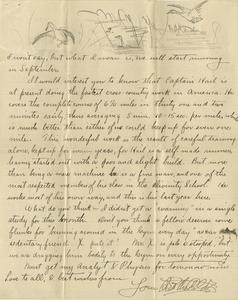 I won't say, but what I mean is, we will start running
in September.
I would interest you to know that Captain Hail is
at present doing the fastest cross country work in America. He
covers the complete course of 6 ¾ miles in thirty one and two
minutes easily, thus averaging 5 min. 10-15 sec. per mile, which
is much better than either of us could keep up for even one
mile. This wonderful work is the result of careful training
alone, kept up for many years, for Hail is a self made runner,
having started out with a poor and slight build. But more
than being a mere machine he is a fine man, and one of the
most respected members of his class in the Divinity School. He
works most of his own way, and this is his last year here.
What do you think – I didn't get a single
study for this month. Don't you think a fellow deserves some
for running around in the Gym every day
sedentary friend X puts it? Mr. X is
we are dragging him bodily to the Gym on every opportunity.
Must get my Analyt & Physics for tomorrow now
love to all, & best wishes from